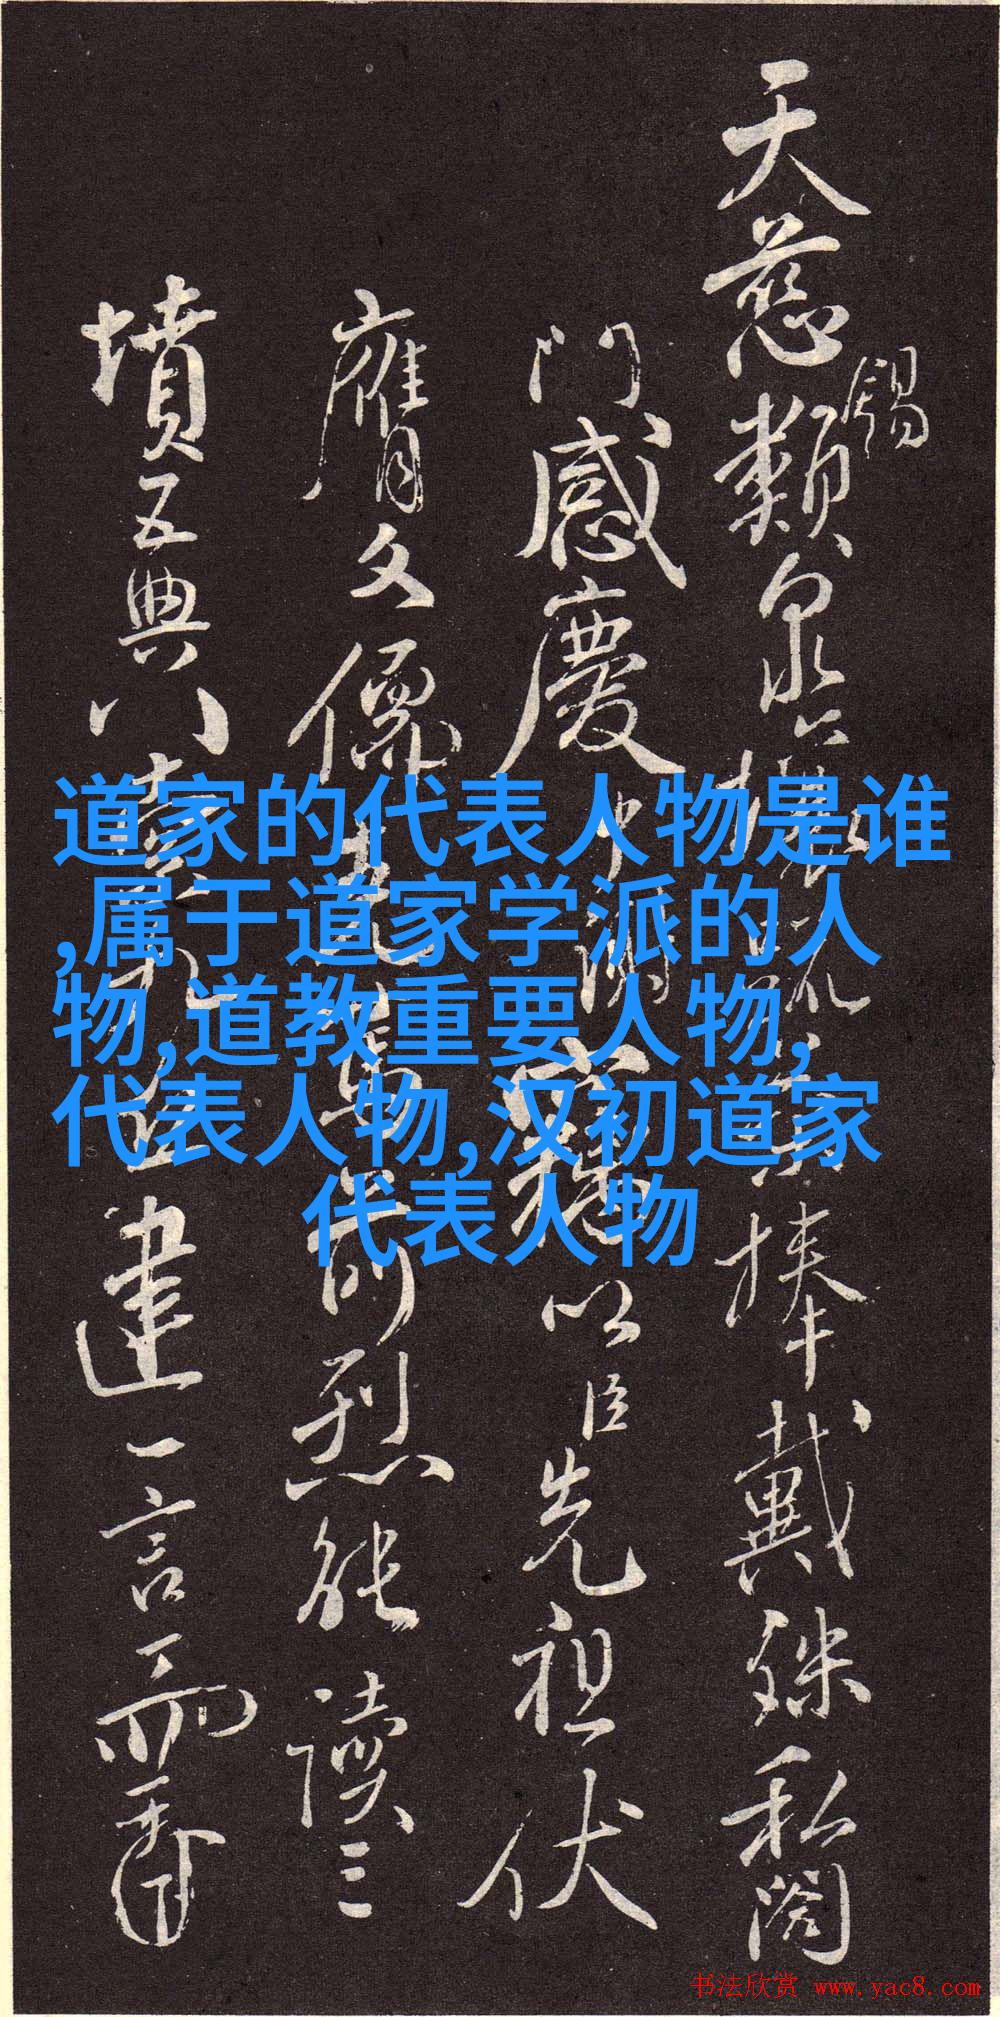 天慈類
錫
泉
捧戴殊私闔
門感慶中
竊以臣先祖伏
膺文儒
前烈能讀三
墳五典八索九丘建一言
道家的代表人物是谁
,属于道家学派的人
物,道教重要人物,
代表人物,汉初道家
代表人物
书法欣赏 www.yac8.com